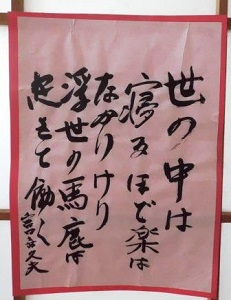 世の中は
寝るほど楽は
なかりけり
浮世の馬鹿は
起きて働く